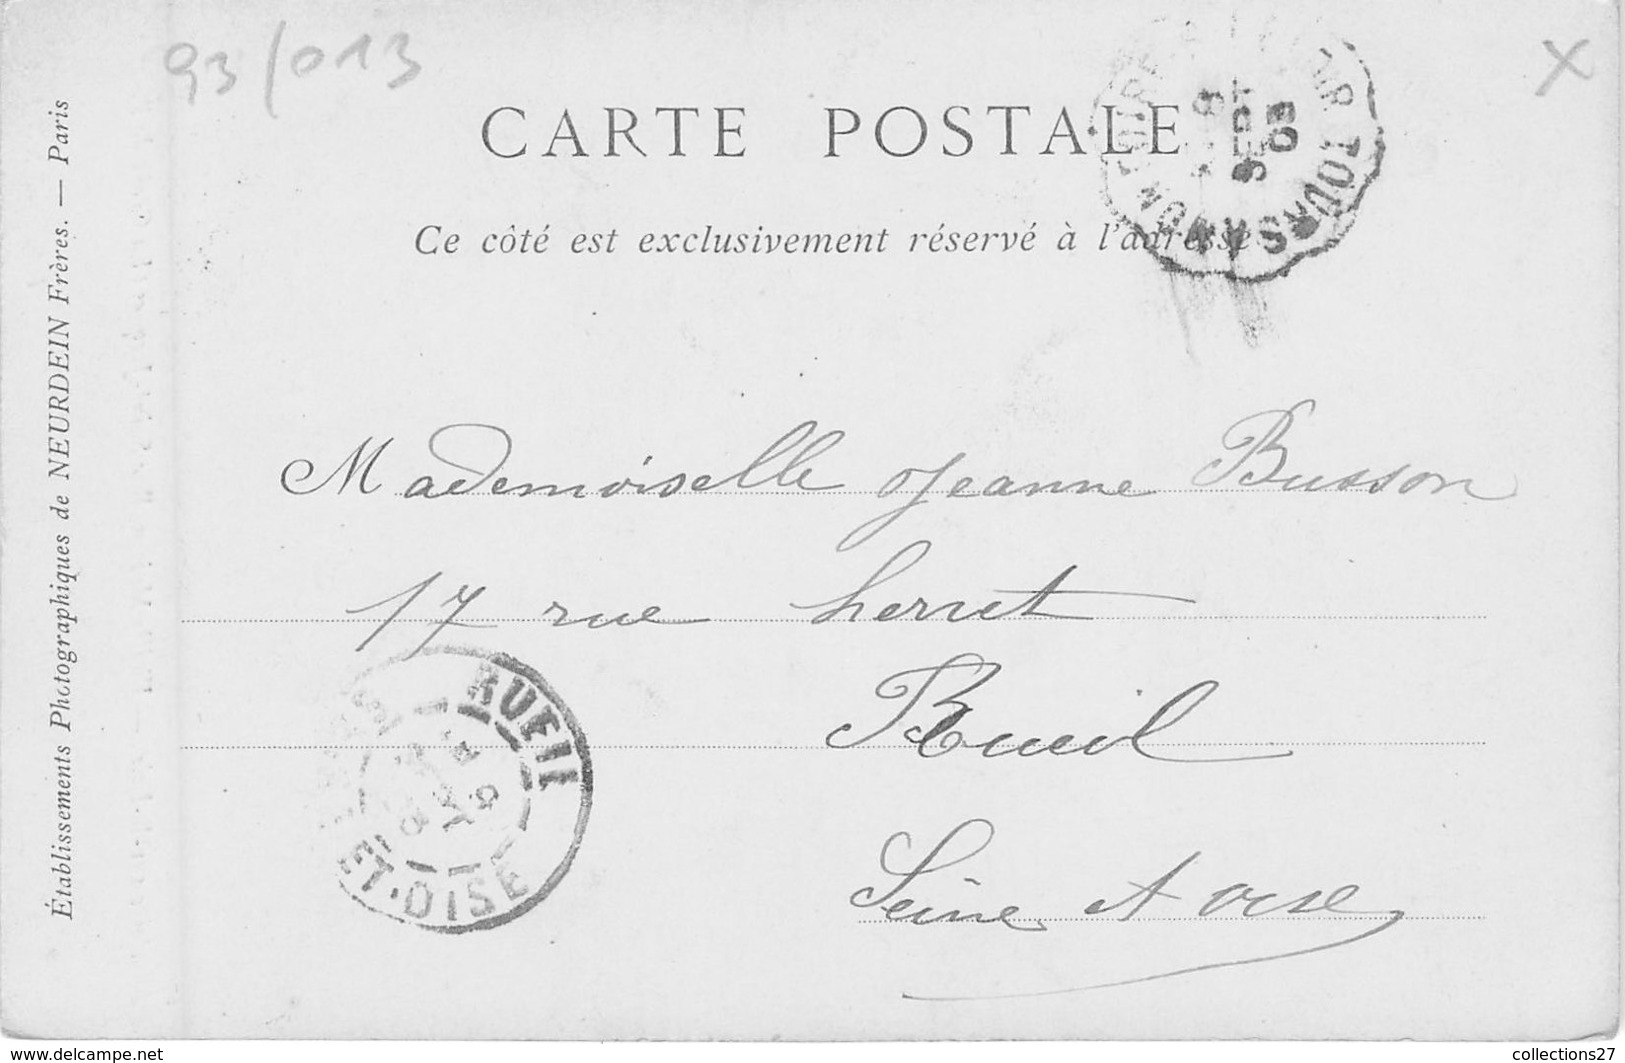 93/013
X
CARTE POSTALE
Ce côté est exclusivement réservé à l'adresse
TOURS A
SEPT
03
Établissements Photographiques de NEURDEIN Frères. — Paris
Mademoiselle Jeanne Busson
17 rue
Rueil
Seine et oise
RUEIL
ET-OISE
www.delcampe.net
collections27